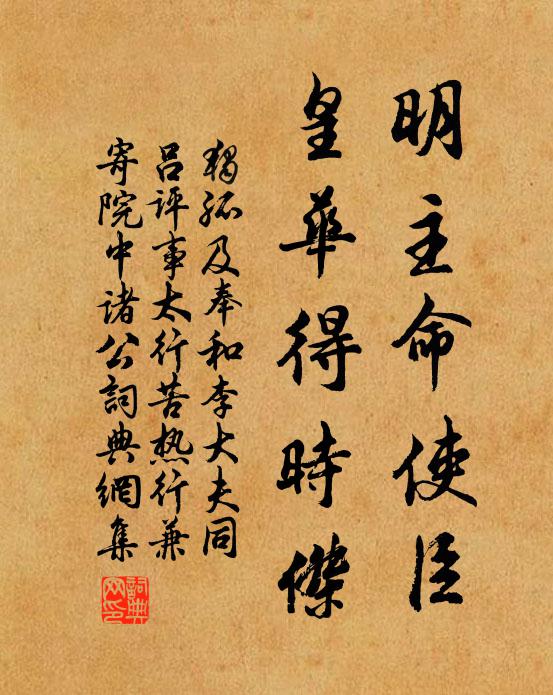 明主命使臣
皇華得時傑
獨孤及奉和李大夫同
呂评事太行苦热行兼
寄院中诸公詞典網集
詞典網印